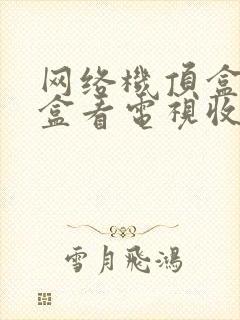 网络機頂盒
盒看電視收
雪月飛鴻